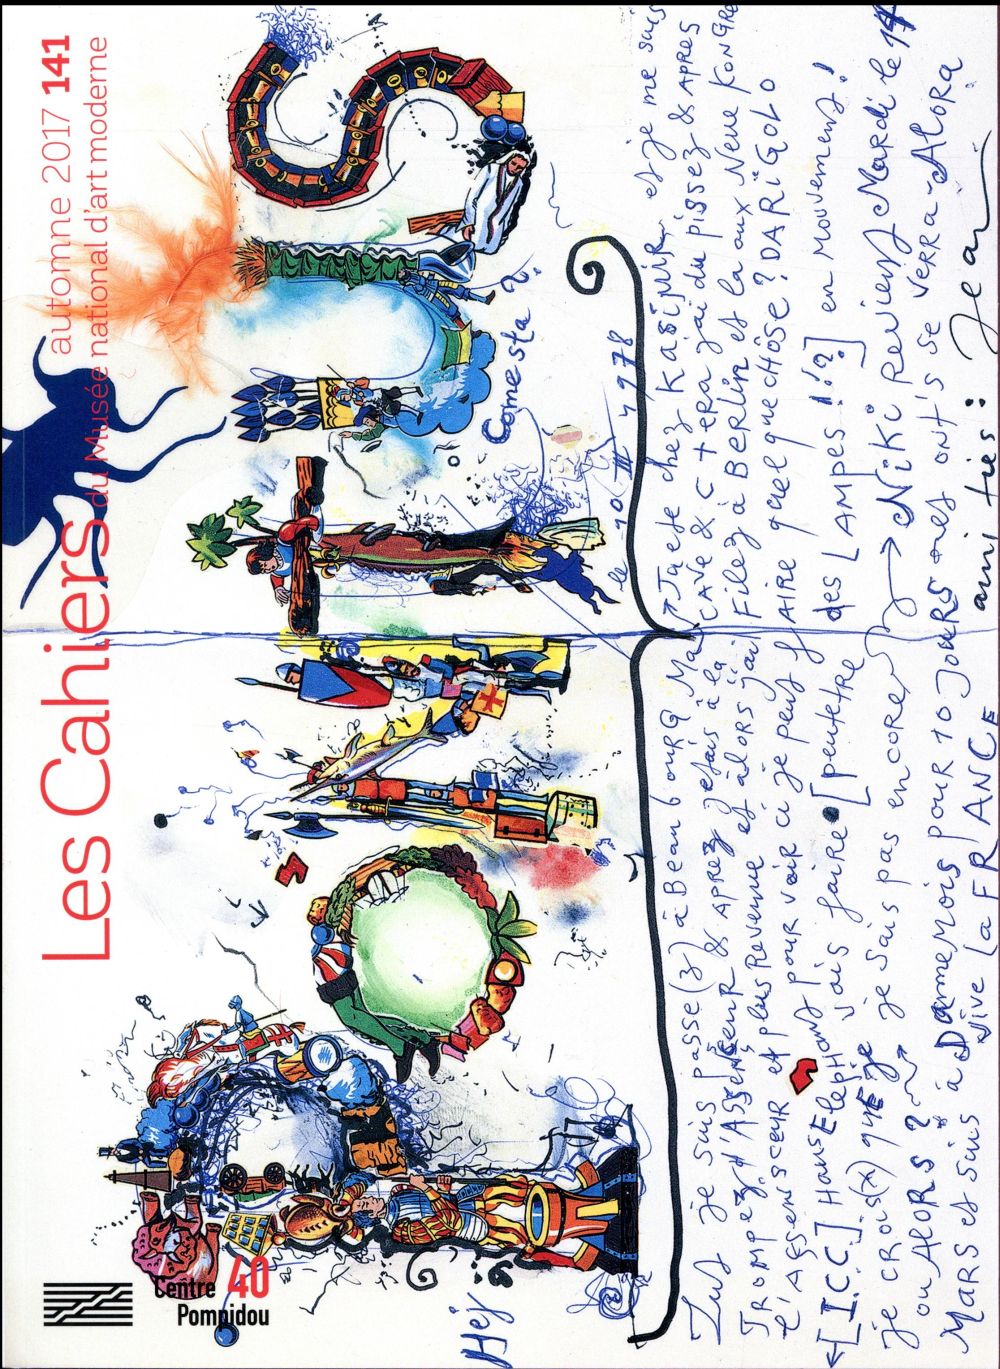 Les Cahiers du Musée national d'art moderne
automne 2017 141
Centre 40
Pompidou
Hej
PONTUS
Comesta?
le 10 III 1978
Zut je suis passe(z) à Beaubourg Mais Tu este chez Kasimir et je me suis
Trompez d'Assenseur & Aprez j'etais à la CAVE & c + era j'ai du pissez & APRES
l'Assensceur et plus Revenue et alors j'ai Filez à Berlin et la aux Neue KONGRE
[I.C.C] Hans Elephant pour voir ci je peus fAIRE quelque CHÔSE? DARIGOLO
je crois(x) que je vais faire [peutetre des LAMPES !!?] en mouvement!
ou AlORS? je Sais pas encore → Niki Revient Mardi le 14
Mars et suis à Dannemois pour 10 JOURS ont's se VERRA-Alora
Vive La FRANCE amitiés: Jean